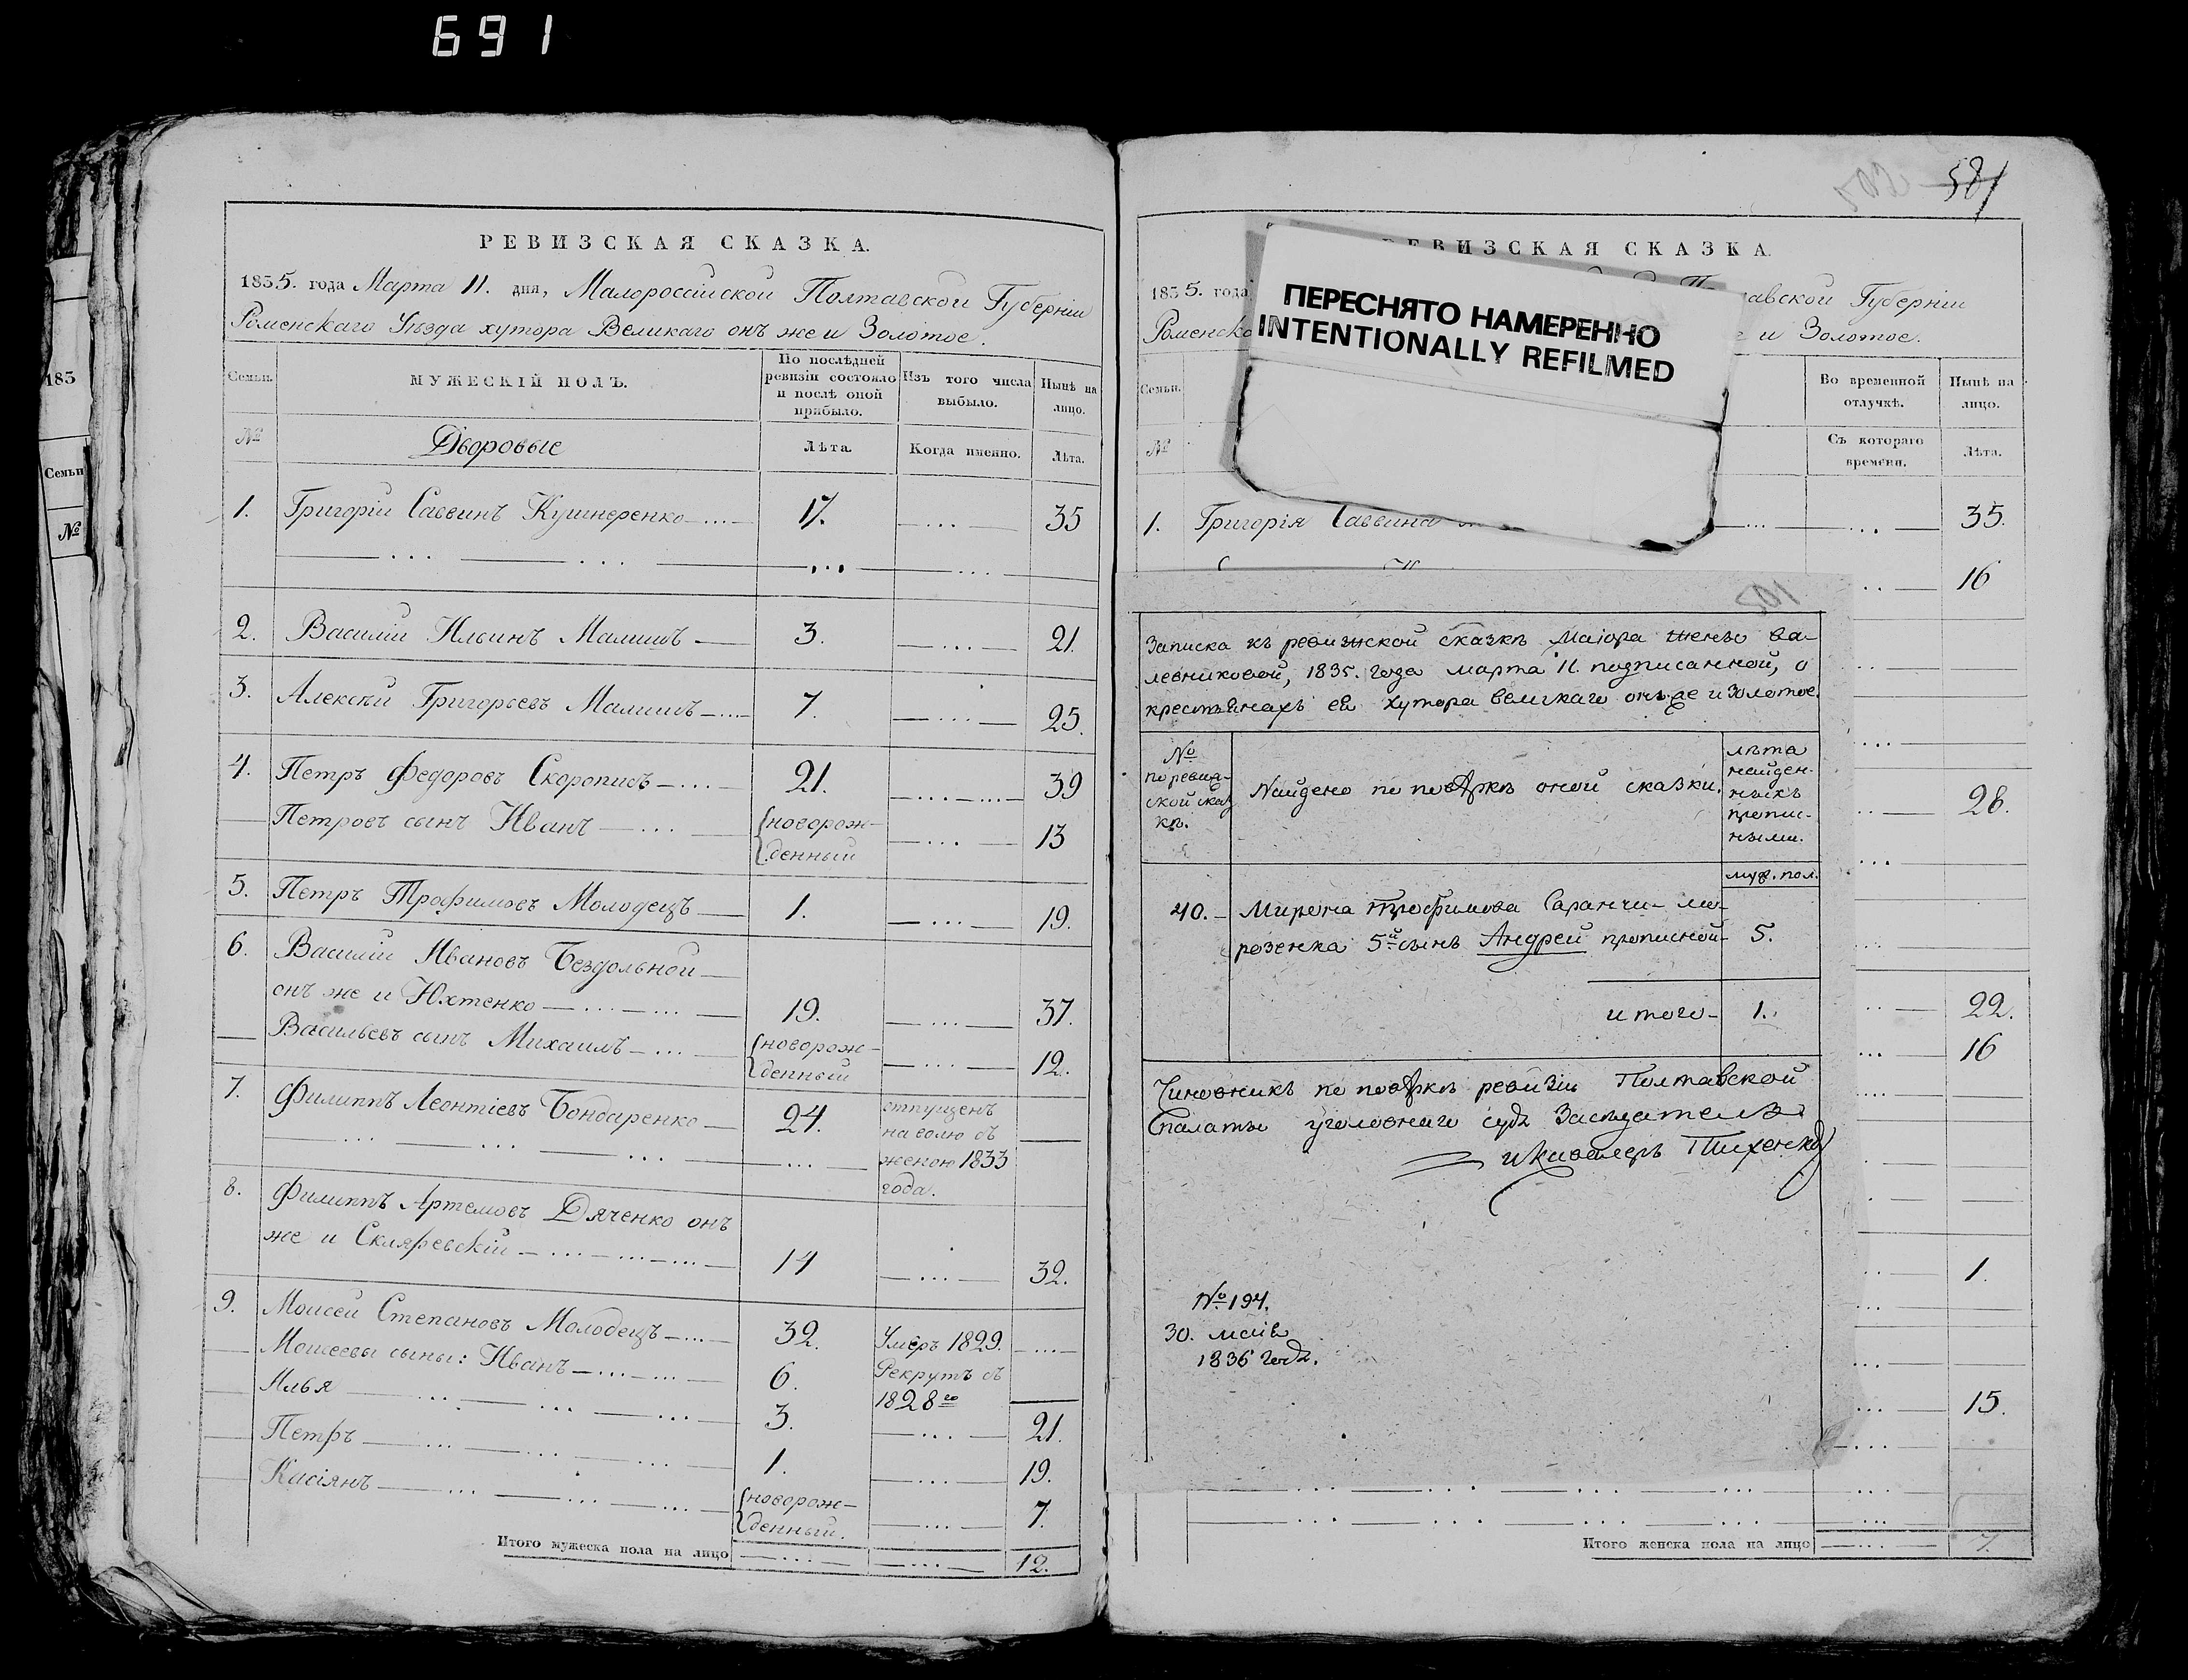 691
183
Семьи
№
РЕВИЗСКАЯ СКАЗКА.
1835. года Марта 11. дня, Малороссійской Полтавской Губерніи
Роменскаго Уѣзда хутора Великаго онъ же и Золотое.
Семьи. МУЖЕСКІЙ ПОЛЪ. По послѣдней ревизіи состояло и послѣ оной прибыло. Изъ того числа выбыло. Нынѣ на лицо.
№ Дворовые Лѣта. Когда именно. Лѣта.
1. Григорій Саввинъ Кушнеренко 17. 35
2. Василій Ильинъ Малишъ 3. 21.
3. Алексѣй Григорьевъ Малишъ 7. 25.
4. Петръ Федоровъ Скорописъ 21. 39
Петровъ сынъ Иванъ новорож-
денный 13
5. Петръ Трофимовъ Молодецъ 1. 19.
6. Василій Ивановъ Бездольной
онъ же и Юхтенко 19. 37.
Васильевъ сынъ Михаилъ новорож-
денный 12.
7. Филиппъ Леонтіевъ Бондаренко 24. отпущенъ
на волю съ
женою 1833
года.
8. Филиппъ Артемовъ Дяченко онъ
же и Скляревскій 14 32.
9. Моисей Степановъ Молодецъ 32. Умеръ 1829.
Моисеевы сыны: Иванъ 6. Рекрутъ съ
1828го
Илья 3. 21.
Петръ 1. 19.
Касіянъ новорож-
денный. 7.
Итого мужеска пола на лицо 12.
502 581
РЕВИЗСКАЯ СКАЗКА.
1835. года авской Губерніи
Роменска е и Золотое.
ПЕРЕСНЯТО НАМЕРЕННО
INTENTIONALLY REFILMED
Семьи. Во временной отлучкѣ. Нынѣ на лицо.
№ Съ котораго времени. Лѣта.
1. Григорія Саввина 35.
16
501
Записка къ ревижской сказкѣ маіора жены Ва-
левиковой, 1835. года марта 11. подписанной, о
крестьянахъ ея хутора Великаго онъ же и Золотое.
№
по ревиж-
ской сказ
кѣ.
Найдено по повѣркѣ оной сказки.
лѣта
найден-
ныхъ
пропис-
ными.
муж. пол.
40. Мирона Трофимова Саранчи- мо-
розенка 5й сынъ Андрей прописной 5.
итого 1.
Чиновникъ по повѣркѣ ревизіи Полтавской
палаты уголовнаго суда Засѣдатель
и Кавалеръ Тихенко
№ 194.
30. маія
1836 года.
28.
22.
16
1.
15.
Итого женска пола на лицо 7.